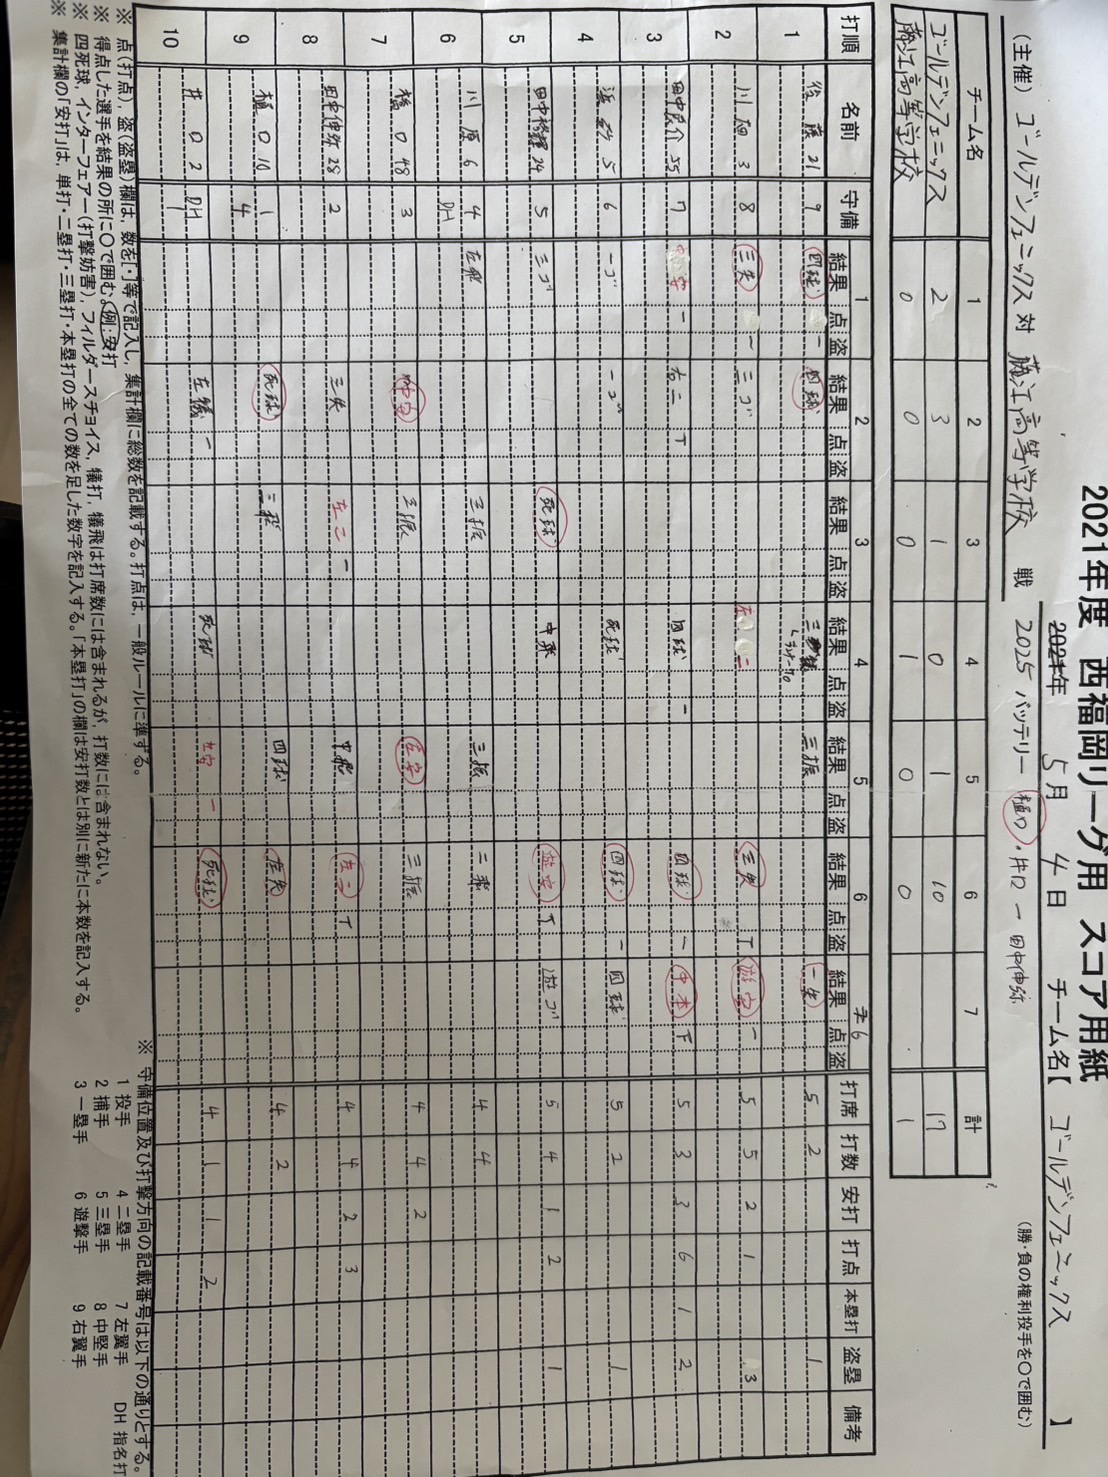 2021年度 西福岡リーグ用 スコア用紙
2025年 5月 4日 チーム名【 ゴールデンフェニックス 】
(主催) ゴールデンフェニックス 対 藤江高等学校 戦 2025 バッテリー 樋口・井口 ー 田中伸弥 (勝・負の権利投手を○で囲む)
チーム名 1 2 3 4 5 6 7 計
ゴールデンフェニックス 2 3 1 0 1 10 17
藤江高等学校 0 0 0 1 0 0 1
打順 名前 守備 1 結果 点 盗 2 結果 点 盗 3 結果 点 盗 4 結果 点 盗 5 結果 点 盗 6 結果 点 盗 7 6 結果 点 盗 打席 打数 安打 打点 本塁打 盗塁 備考
1 後藤 21 9 四球 一 四球 三振 三振 一失 5 2 1
2 川畑 3 8 三失 一 三ゴ 左二 三失 T 遊安 一 5 5 2 1 3
3 田中 介 55 7 中安 一 右二 T 四球 一 四球 一 中本 下 5 3 3 6 1 2
4 5 6 一ゴ 一ゴ 死球 四球 一 四球 5 2 1
5 田中 24 5 三ゴ 死球 中飛 遊安 T 遊ゴ 5 4 1 2 1
6 川原 6 4 DH 左飛 三振 三振 二飛 4 4
7 橋口 48 3 中安 三振 左安 三振 4 4 2
8 田中伸弥 28 2 三失 左二 一 中飛 左二 T 4 4 2 3
9 樋口 10 1 4 死球 三飛 四球 左失 4 2
10 井口 2 DH 1 左犠 一 死球 左安 一 死球 4 1 1 2
※ 点(打点)、盗(盗塁)欄は、数を[・]等で記入し、集計欄に総数を記載する。打点は、一般ルールに準ずる。
※ 得点した選手を結果の所に○で囲む。例：安打
※ 四死球、インターフェアー(打撃妨害)、フィルダースチョイス、犠打、犠飛は打席数には含まれるが、打数には含まれない。
※ 集計欄の「安打」は、単打・二塁打・三塁打・本塁打の全ての数を足した数字を記入する。「本塁打」の欄は安打数とは別に新たに本数を記入する。
※ 守備位置及び打撃方向の記載番号は以下の通りとする。
1 投手 4 二塁手 7 左翼手 DH 指名打
2 捕手 5 三塁手 8 中堅手
3 一塁手 6 遊撃手 9 右翼手